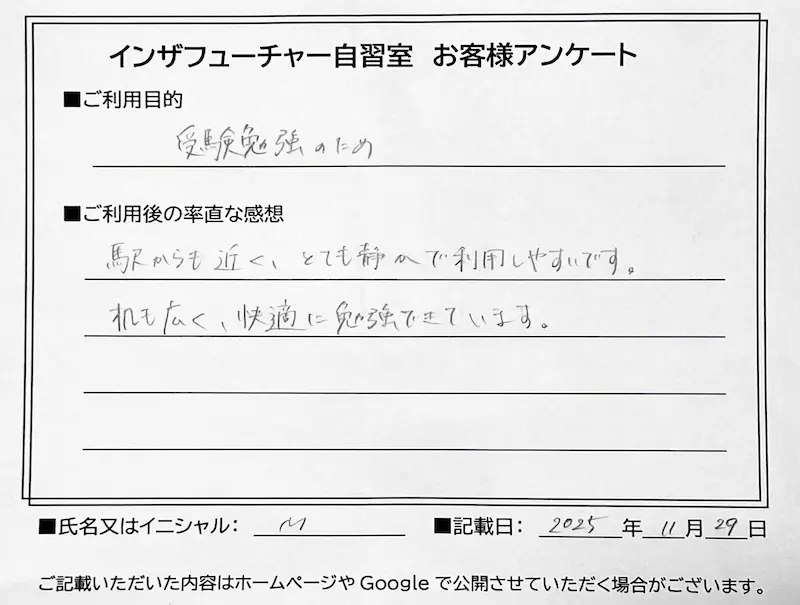 インザフューチャー自習室 お客様アンケート
■ご利用目的
受験勉強のため
■ご利用後の率直な感想
駅からも近く、とても静かで利用しやすいです。
机も広く、快適に勉強できています。
■氏名又はイニシャル： M ■記載日： 2025 年 11 月 29 日
ご記載いただいた内容はホームページや Google で公開させていただく場合がございます。